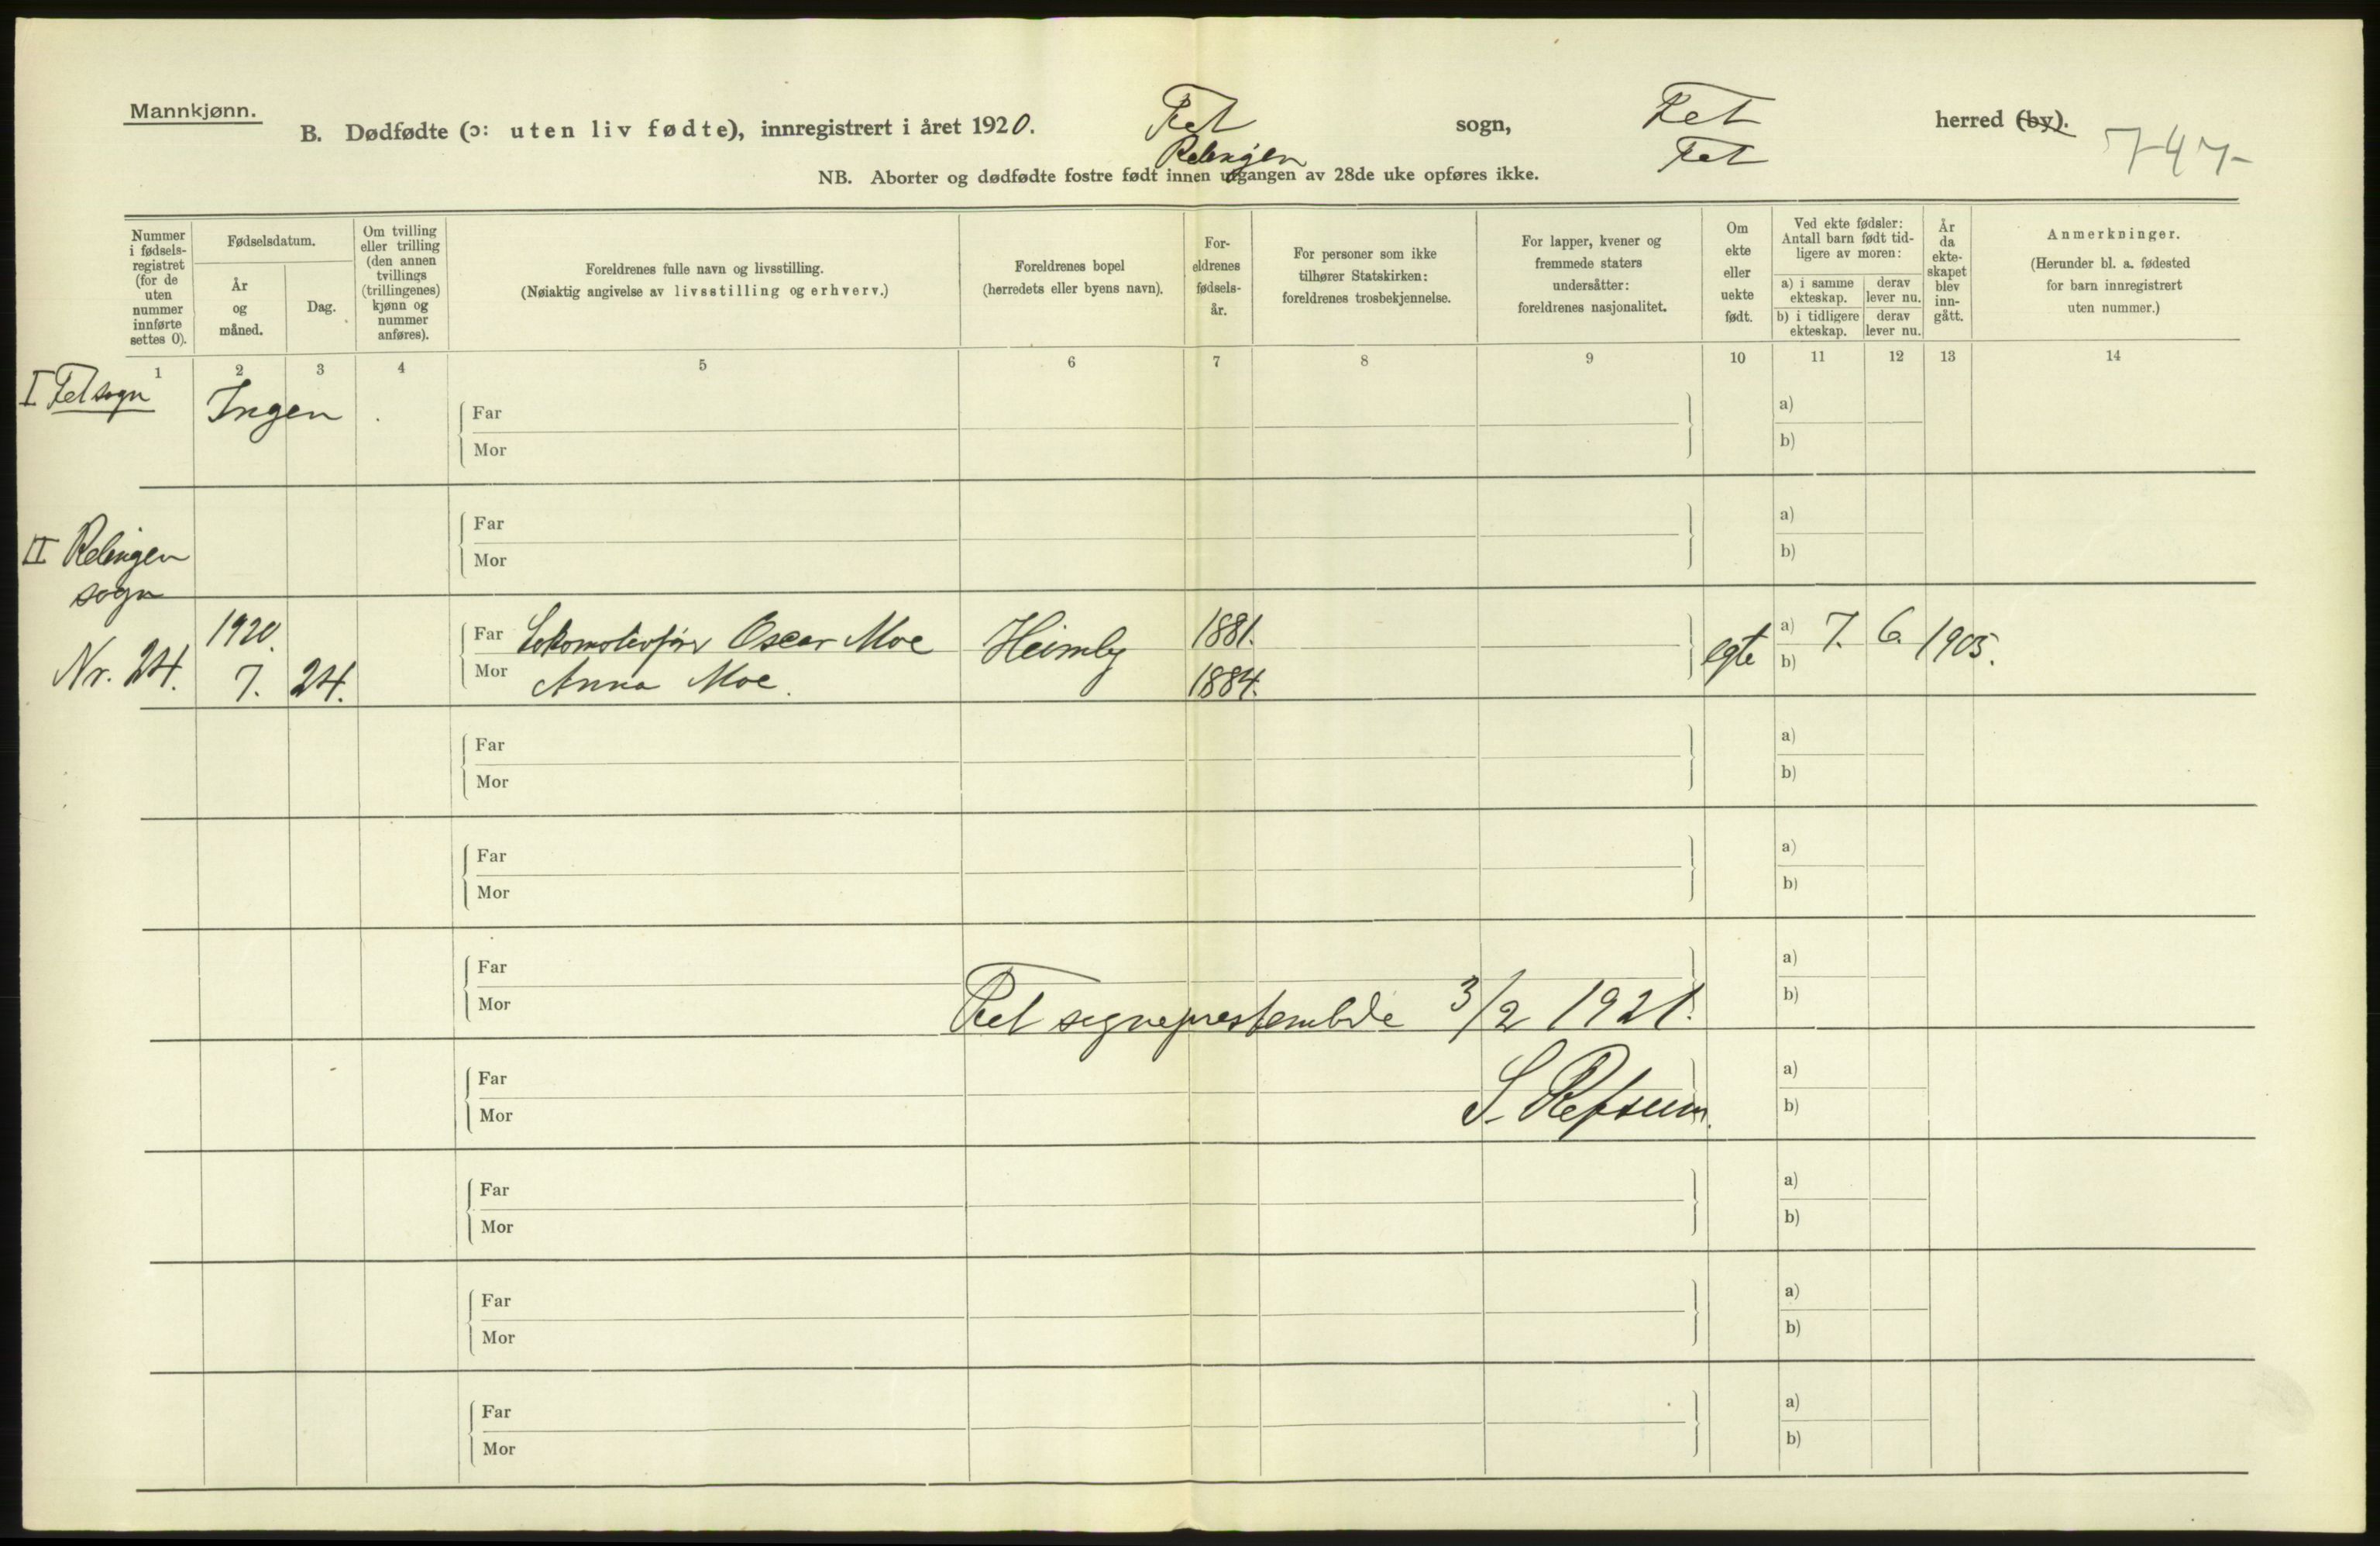 Mannkjønn.
B. Dødfødte (ɔ: uten liv fødte), innregistrert i året 1920. Fet sogn, Fet herred (by).
Relingen Fet 747-
NB. Aborter og dødfødte fostre født innen utgangen av 28de uke opføres ikke.
Nummer i fødsels-registret (for de uten nummer innførte settes 0).
Fødselsdatum.
År og måned.
Dag.
Om tvilling eller trilling (den annen tvillings (trillingenes) kjønn og nummer anføres).
Foreldrenes fulle navn og livsstilling.
(Nøiaktig angivelse av livsstilling og erhverv.)
Foreldrenes bopel
(herredets eller byens navn).
For-eldrenes fødsels-år.
For personer som ikke tilhører Statskirken: foreldrenes trosbekjennelse.
For lapper, kvener og fremmede staters undersåtter: foreldrenes nasjonalitet.
Om ekte eller uekte født.
Ved ekte fødsler: Antall barn født tid-ligere av moren:
a) i samme ekteskap.
derav lever nu.
b) i tidligere ekteskap.
derav lever nu.
År da ekte-skapet blev inn-gått.
Anmerkninger.
(Herunder bl. a. fødested for barn innregistrert uten nummer.)
1 2 3 4 5 6 7 8 9 10 11 12 13 14
I Fet sogn Ingen Far a)
Mor b)
Far a)
II Relingen Mor b)
sogn
1920. Far Lokomotivfører Oscar Moe Heimly 1881. egte a) 7. 6. 1905.
Nr. 24. 7. 24. Mor Anna Moe. 1884. b)
Far a)
Mor b)
Far a)
Mor b)
Far a)
Mor Fet sogneprestembede 3/2 1921. b)
Far a)
Mor S. Refsum. b)
Far a)
Mor b)
Far a)
Mor b)
Far a)
Mor b)